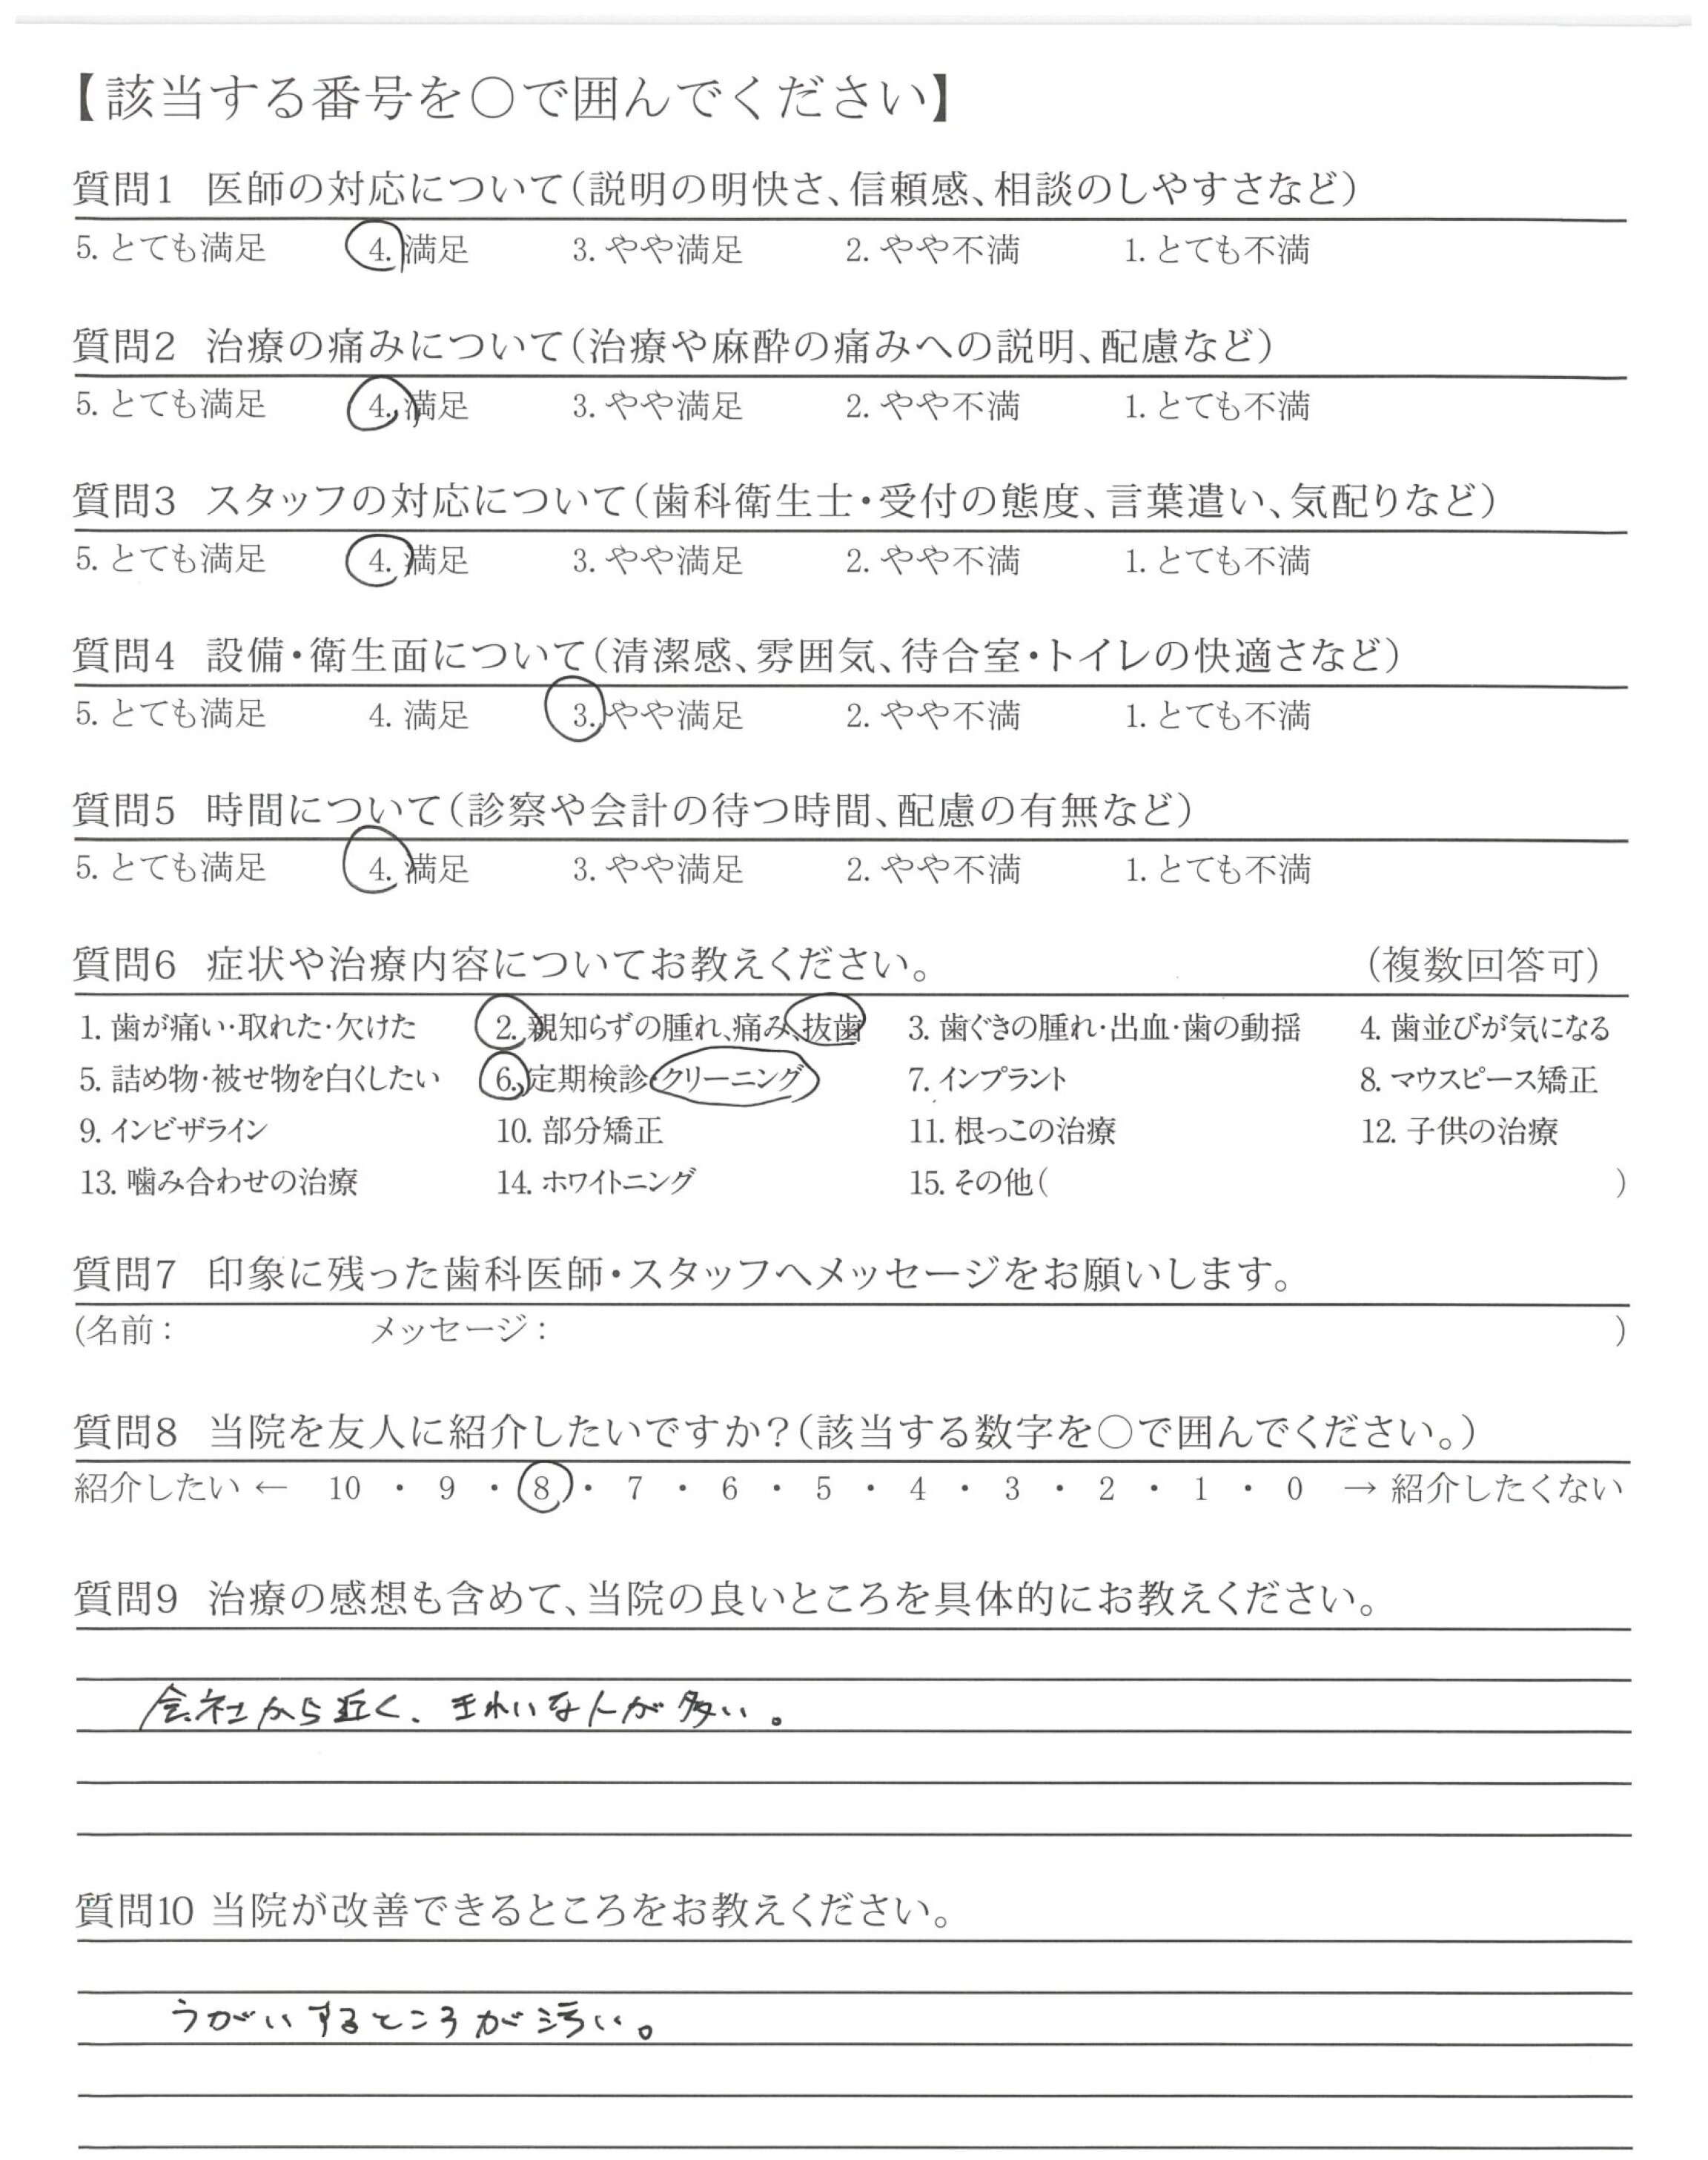 【該当する番号を○で囲んでください】
質問1 医師の対応について(説明の明快さ、信頼感、相談のしやすさなど)
5. とても満足 4. 満足 3. やや満足 2. やや不満 1. とても不満
質問2 治療の痛みについて(治療や麻酔の痛みへの説明、配慮など)
5. とても満足 4. 満足 3. やや満足 2. やや不満 1. とても不満
質問3 スタッフの対応について(歯科衛生士・受付の態度、言葉遣い、気配りなど)
5. とても満足 4. 満足 3. やや満足 2. やや不満 1. とても不満
質問4 設備・衛生面について(清潔感、雰囲気、待合室・トイレの快適さなど)
5. とても満足 4. 満足 3. やや満足 2. やや不満 1. とても不満
質問5 時間について(診察や会計の待つ時間、配慮の有無など)
5. とても満足 4. 満足 3. やや満足 2. やや不満 1. とても不満
質問6 症状や治療内容についてお教えください。 (複数回答可)
1. 歯が痛い・取れた・欠けた 2. 親知らずの腫れ、痛み、抜歯 3. 歯ぐきの腫れ・出血・歯の動揺 4. 歯並びが気になる
5. 詰め物・被せ物を白くしたい 6. 定期検診・クリーニング 7. インプラント 8. マウスピース矯正
9. インビザライン 10. 部分矯正 11. 根っこの治療 12. 子供の治療
13. 噛み合わせの治療 14. ホワイトニング 15. その他( )
質問7 印象に残った歯科医師・スタッフへメッセージをお願いします。
(名前: メッセージ: )
質問8 当院を友人に紹介したいですか?(該当する数字を○で囲んでください。)
紹介したい ← 10 ・ 9 ・ 8 ・ 7 ・ 6 ・ 5 ・ 4 ・ 3 ・ 2 ・ 1 ・ 0 → 紹介したくない
質問9 治療の感想も含めて、当院の良いところを具体的にお教えください。
会社から近く、きれいな人が多い。
質問10 当院が改善できるところをお教えください。
うがいするところが汚い。